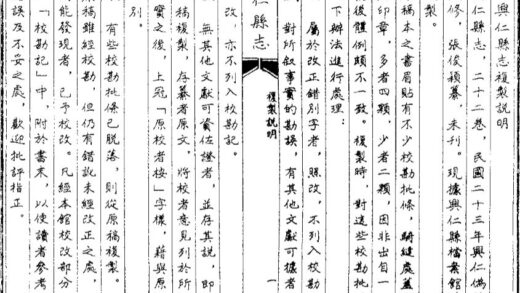 興仁縣志複製說明
仁縣志，二十二卷，民國二十三年興仁
修，張俊穎纂，未刊。現據興仁縣檔案館
製。
稿本之書眉貼有不少校勘批條，騎縫處蓋
印章，多者四顆，少者二顆，因非出自一
後體例頗不一致。複製時，對這些校勘批
下辦法進行處理：
屬於改正錯別字者，照改，不列入校勘
對所叙事實的勘誤，有其他文獻可據者
仁縣志
複製説明
一
改，亦不列入校勘記。
無其他文獻可資佐證者，並存其說，即
稿複製，存纂者原文，將校者意見列於所
實之後，上冠「原校者按」字樣，藉與原
別。
有些校勘批條已脱落，則從原稿複製。
原稿雖經校勘，但仍有錯訛未經改正之處，
能發現者，已予校改。凡經本館校改部分
「校勘記」中，附於書末，以使讀者參考
誤及不妥之處，歡迎批評指正。